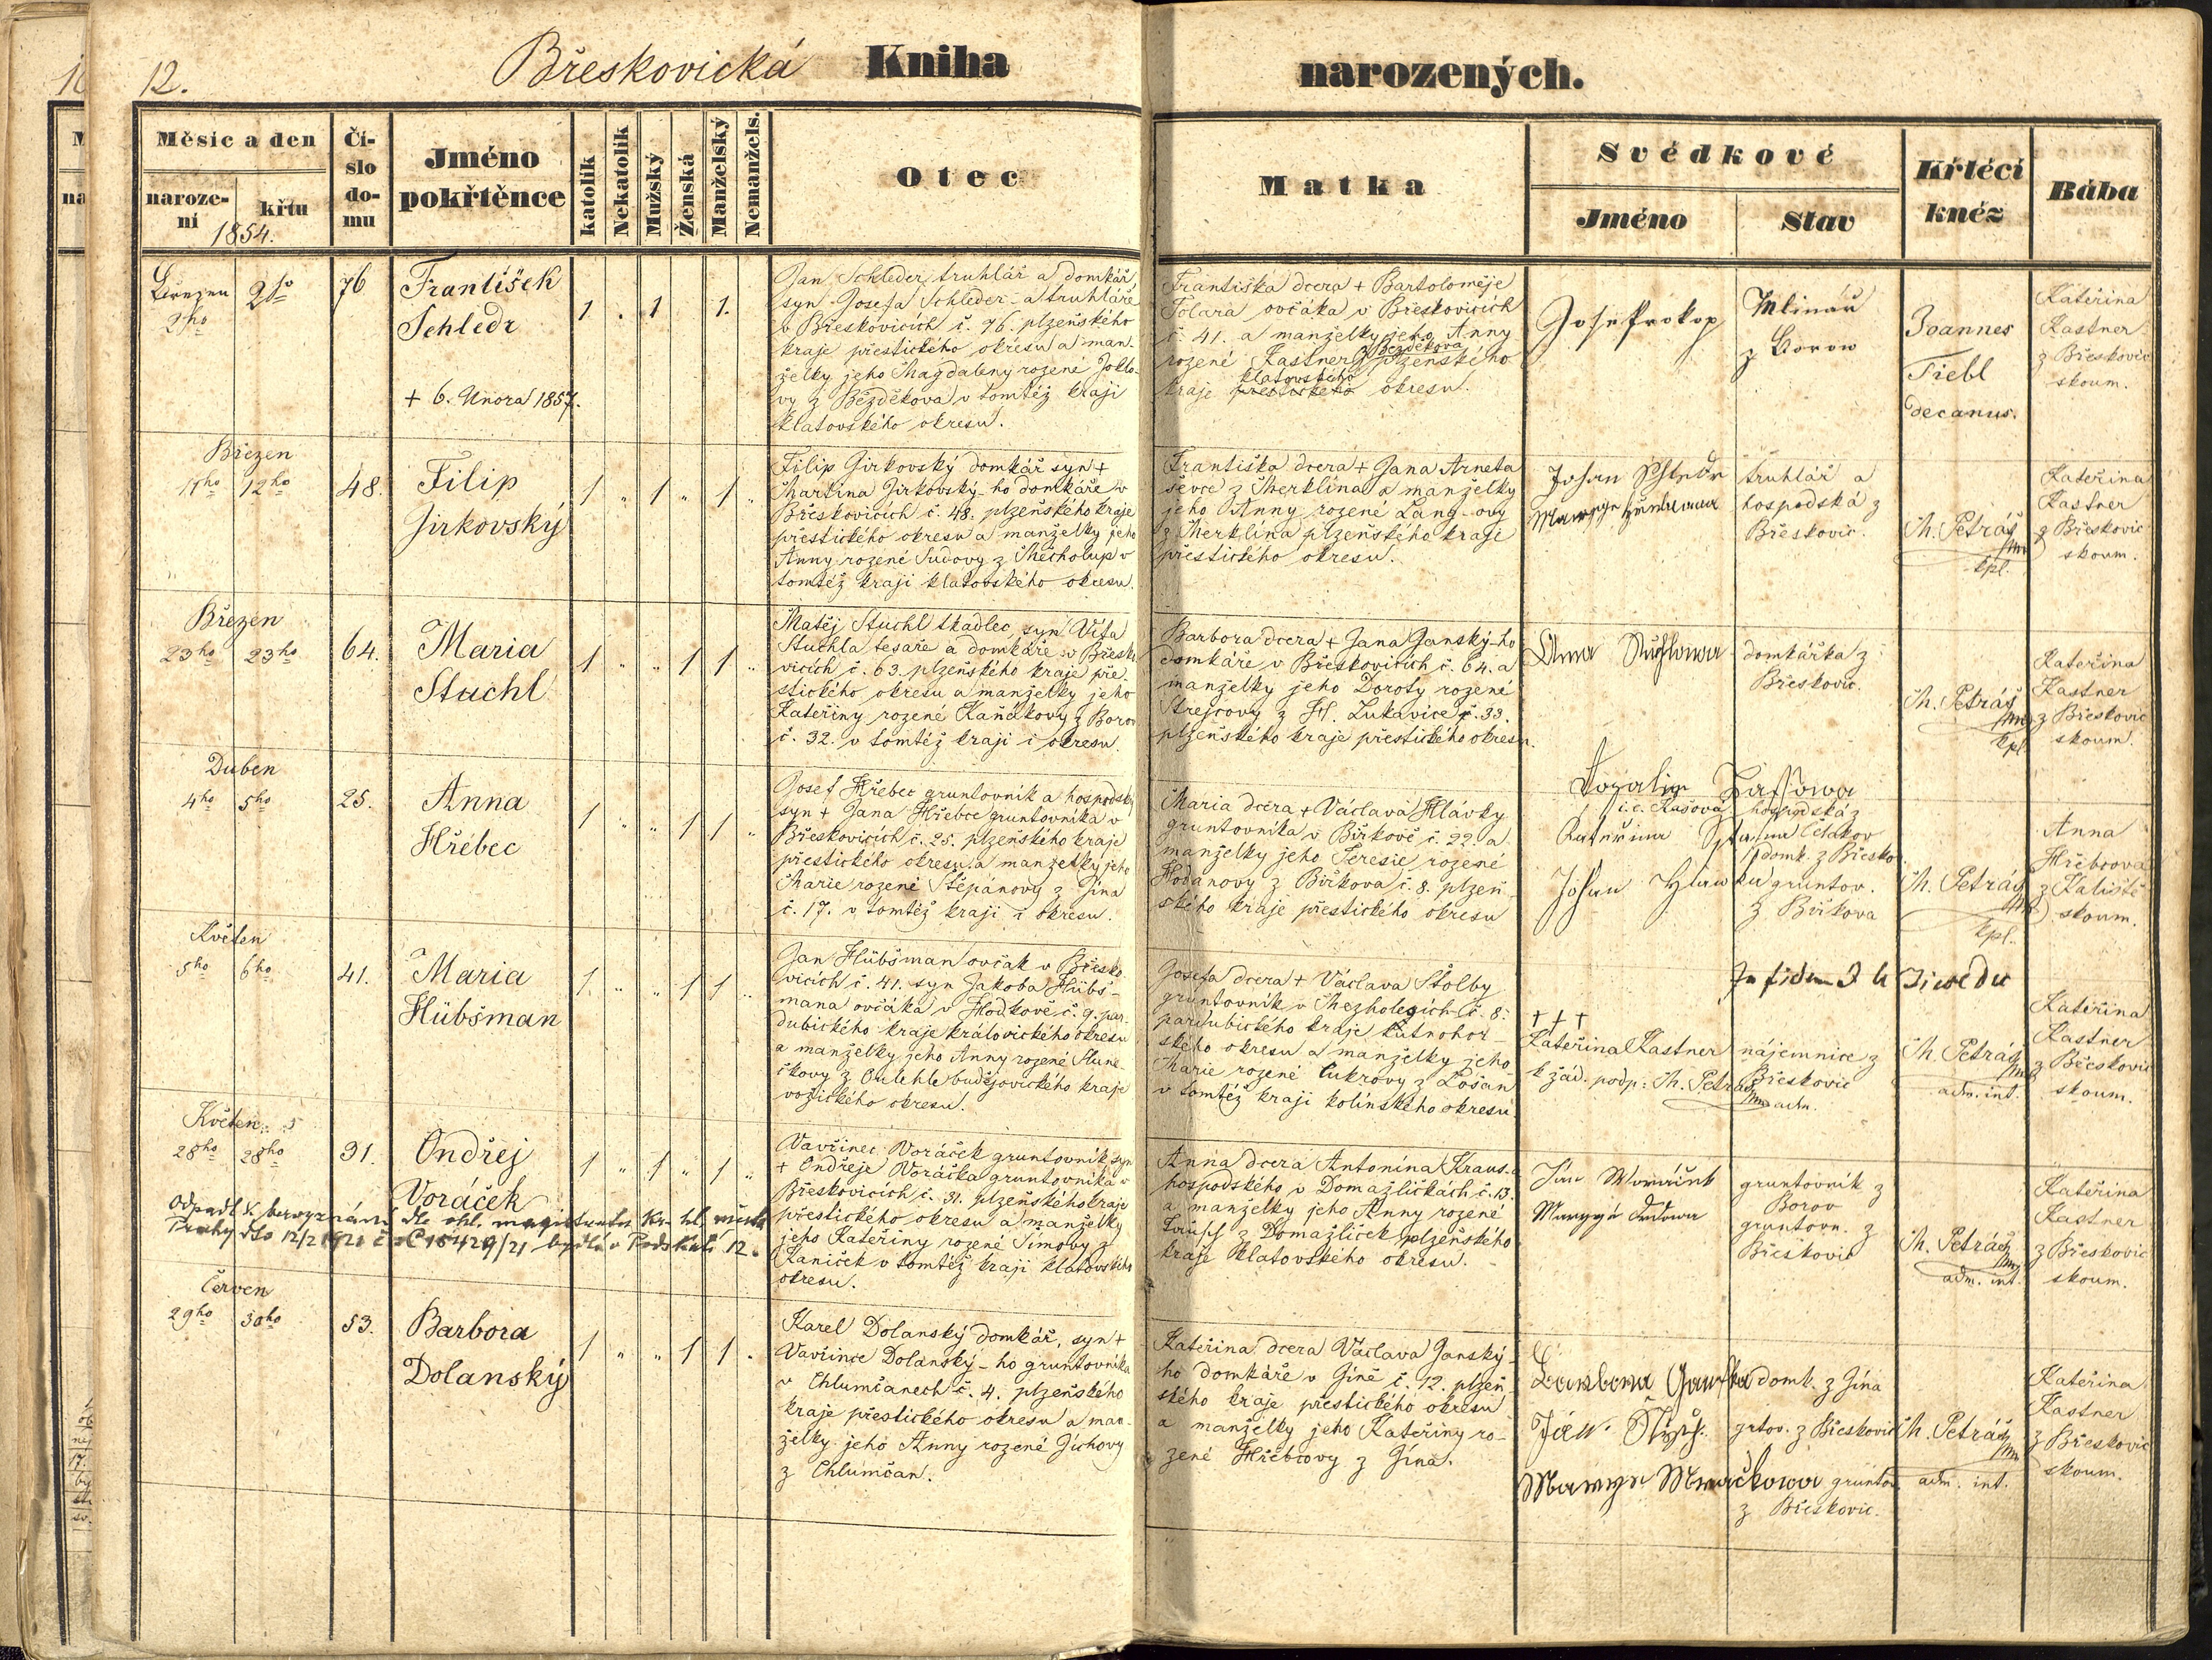 12.
Břeskovická Kniha narozených.
Měsíc a den
naroze-
ní
křtu
1854.
Čí-
slo
do-
mu
Jméno
pokřtěnce
katolík
Nekatolík
Mužský
Ženská
Manželský
Nemanžels.
Otec
Matka
Svědkové
Jméno
Stav
Křtící
kněz
Bába
2ho
76
František
Schledr
+ 6. Února 1857.
1 . 1 1.
Jan Schleder truhlář a domkář,
syn Josefa Schleder-a truhláře
v Břeskovicích č. 76. plzeňského
kraje přestického okresu a man-
želky jeho Magdaleny rozené Joklo-
vy z Bezděkova v tomtéž kraji
klatovského okresu.
Františka dcera + Bartoloměje
Tolara ovčáka v Břeskovicích
č. 41. a manželky jeho Anny
rozené Kastner z Bezděkova plzeňského
kraje klatovského přestického okresu.
Josef Prokop
Mlinář
z Borow
Joannes
Fiebl
decanus.
Kateřina
Kastner
z Břeskovic
skoum.
Březen
11ho 12ho
48.
Filip
Jirkovský
1 " 1 " 1 "
Filip Jirkovský domkář syn +
Martina Jirkovský-ho domkáře v
Břeskovicích č. 48. plzeňského kraje
přestického okresu a manželky jeho
Anny rozené Sudovy z Měcholup v
tomtéž kraji klatovského okresu.
Františka dcera + Jana Arneta
ševce z Merklína a manželky
jeho Anny rozené Lang-ovy
z Merklína plzeňského kraje
přestického okresu.
Johan Schledr
truhlář a
hospodská z
Břeskovic.
M. Petráš
kpl.
Kateřina
Kastner
z Břeskovic
skoum.
Březen
23ho 23ho
64.
Maria
Stuchl
1 " " 1 1 "
Matěj Stuchl tkadlec syn Víta
Stuchla tesaře a domkáře v Břesko-
vicích č. 63. plzeňského kraje pře-
stického okresu a manželky jeho
Kateřiny rozené Kaňákovy z Borov
č. 32. v tomtéž kraji i okresu.
Barbora dcera + Jana Janský-ho
domkáře v Břeskovicích č. 64. a
manželky jeho Doroty rozené
Strejcovy z H. Lukavice č. 33.
plzeňského kraje přestického okresu.
Anna Stuchlowa
domkářka z
Břeskovic.
M. Petráš
kpl.
Kateřina
Kastner
z Břeskovic
skoum.
Duben
4ho 5ho
25.
Anna
Hřebec
1 " " 1 1 "
Josef Hřebec gruntovník a hospodský
syn + Jana Hřebce gruntovníka v
Břeskovicích č. 25. plzeňského kraje
přestického okresu a manželky jeho
Marie rozené Štěpánovy z Jína
č. 17. v tomtéž kraji i okresu.
Maria dcera + Václava Hlávky
gruntovníka v Biřkově č. 22. a
manželky jeho Teresie rozené
Hodanovy z Biřkova č. 8. plzeň-
ského kraje přestického okresu
i. e. Kašová hospodská z
Četakov
domk. z Břesko.
gruntov.
z Biřkova
M. Petráš
kpl.
Anna
Hřebcova
z Kaliště
skoum.
Květen
5ho 6ho
41.
Maria
Hübšman
1 " " 1 1 "
Jan Hübšman ovčák v Břesko-
vicích č. 41. syn Jakoba Hübš-
mana ovčáka v Hodkově č. 9. par-
dubického kraje královického okresu
a manželky jeho Anny rozené Slune-
čkovy z Oulehle budějovického kraje
vožického okresu.
Josefa dcera + Václava Stolby
gruntovník v Mezholezích č. 8.
pardubického kraje kutnohor-
ského okresu a manželky jeho
Marie rozené Cukrovy z Lošan
v tomtéž kraji kolínského okresu.
+ + +
Kateřina Kastner
k žád. podp: M. Petráš
adm.
nájemnice z
Břeskovic
M. Petráš
adm. int.
Kateřina
Kastner
z Břeskovic
skoum.
Květen
28ho 28ho
31.
Ondřej
Voráček
1 " 1 " 1 "
Odpadl k bezvyznání dle ohl. magistrátu kr. hl. města
Prahy dto 12/2 1921 č. 15429/21 bydlí v Podskalí 12.
Vavřinec Voráček gruntovník syn
+ Ondřeje Voráčka gruntovníka v
Břeskovicích č. 31. plzeňského kraje
přestického okresu a manželky
jeho Kateřiny rozené Tímovy z
Kaniček v tomtéž kraji klatovského
okresu.
Anna dcera Antonína Kraus-a
hospodského v Domažličkách č. 13.
a manželky jeho Anny rozené
z Domažliček plzeňského
kraje klatovského okresu.
gruntovník z
Borov
gruntovn. z
Břeskovic
M. Petráš
adm. int.
Kateřina
Kastner
z Břeskovic
skoum.
Červen
29ho 30ho
53.
Barbora
Dolanský
1 " " 1 1 .
Karel Dolanský domkář, syn +
Vavřince Dolanský-ho gruntovníka
v Chlumčanech č. 4. plzeňského
kraje přestického okresu a man-
želky jeho Anny rozené Jíchovy
z Chlumčan.
Kateřina dcera Václava Janský-
ho domkáře v Jíně č. 12. plzeň-
ského kraje přestického okresu
a manželky jeho Kateřiny ro-
zené Hřebcovy z Jína.
domk. z Jína
grtov. z Břeskovic
gruntov.
z Břeskovic.
M. Petráš
adm. int.
Kateřina
Kastner
z Břeskovic
skoum.